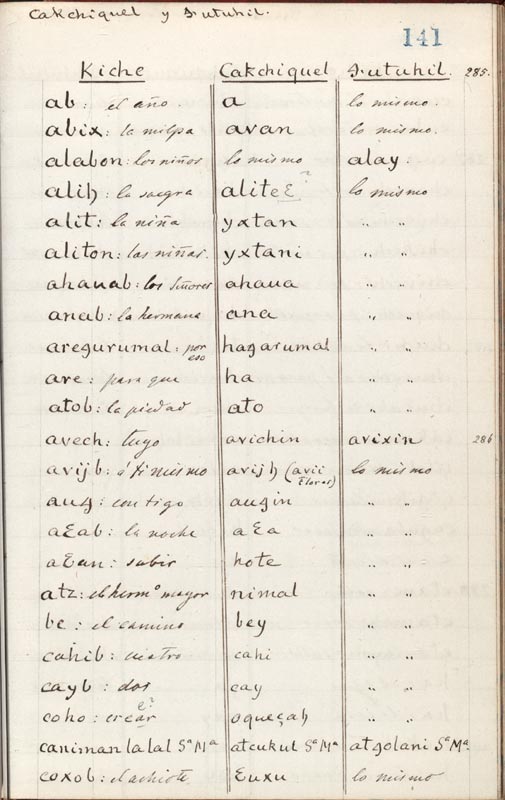 Cakchiquel y Sutuhil.
141
Kiche Cakchiquel Sutuhil. 285.
ab: el año. a lo mismo.
abix: la milpa avan lo mismo.
alabon: los niños lo mismo alay.
alih: la suegra aliteꜫ ? lo mismo
alit: la niña yxtan " "
aliton: las niñas. yxtani " "
ahauab: los Señores ahaua " "
anab: la hermana ana " "
aregurumal: por eso hagarumal " "
are: para que ha " "
atob: la piedad ato " "
avech: tuyo avichin avixin 286
avijb: á ti mismo avijh (avii Flores) lo mismo
aug: contigo augin " "
aꜫab: la noche aꜫa " "
aꜫan: subir hote " "
atz: el hermº mayor nimal " "
be: el camino bey " "
cahib: cuatro cahi " "
cayb: dos cay " "
coho: crear e? oqueçah " "
caniman la lal Sª Mª atcukul Sª Mª atgolani Sª Mª
coxob: el achiote. ꜫuxu lo mismo